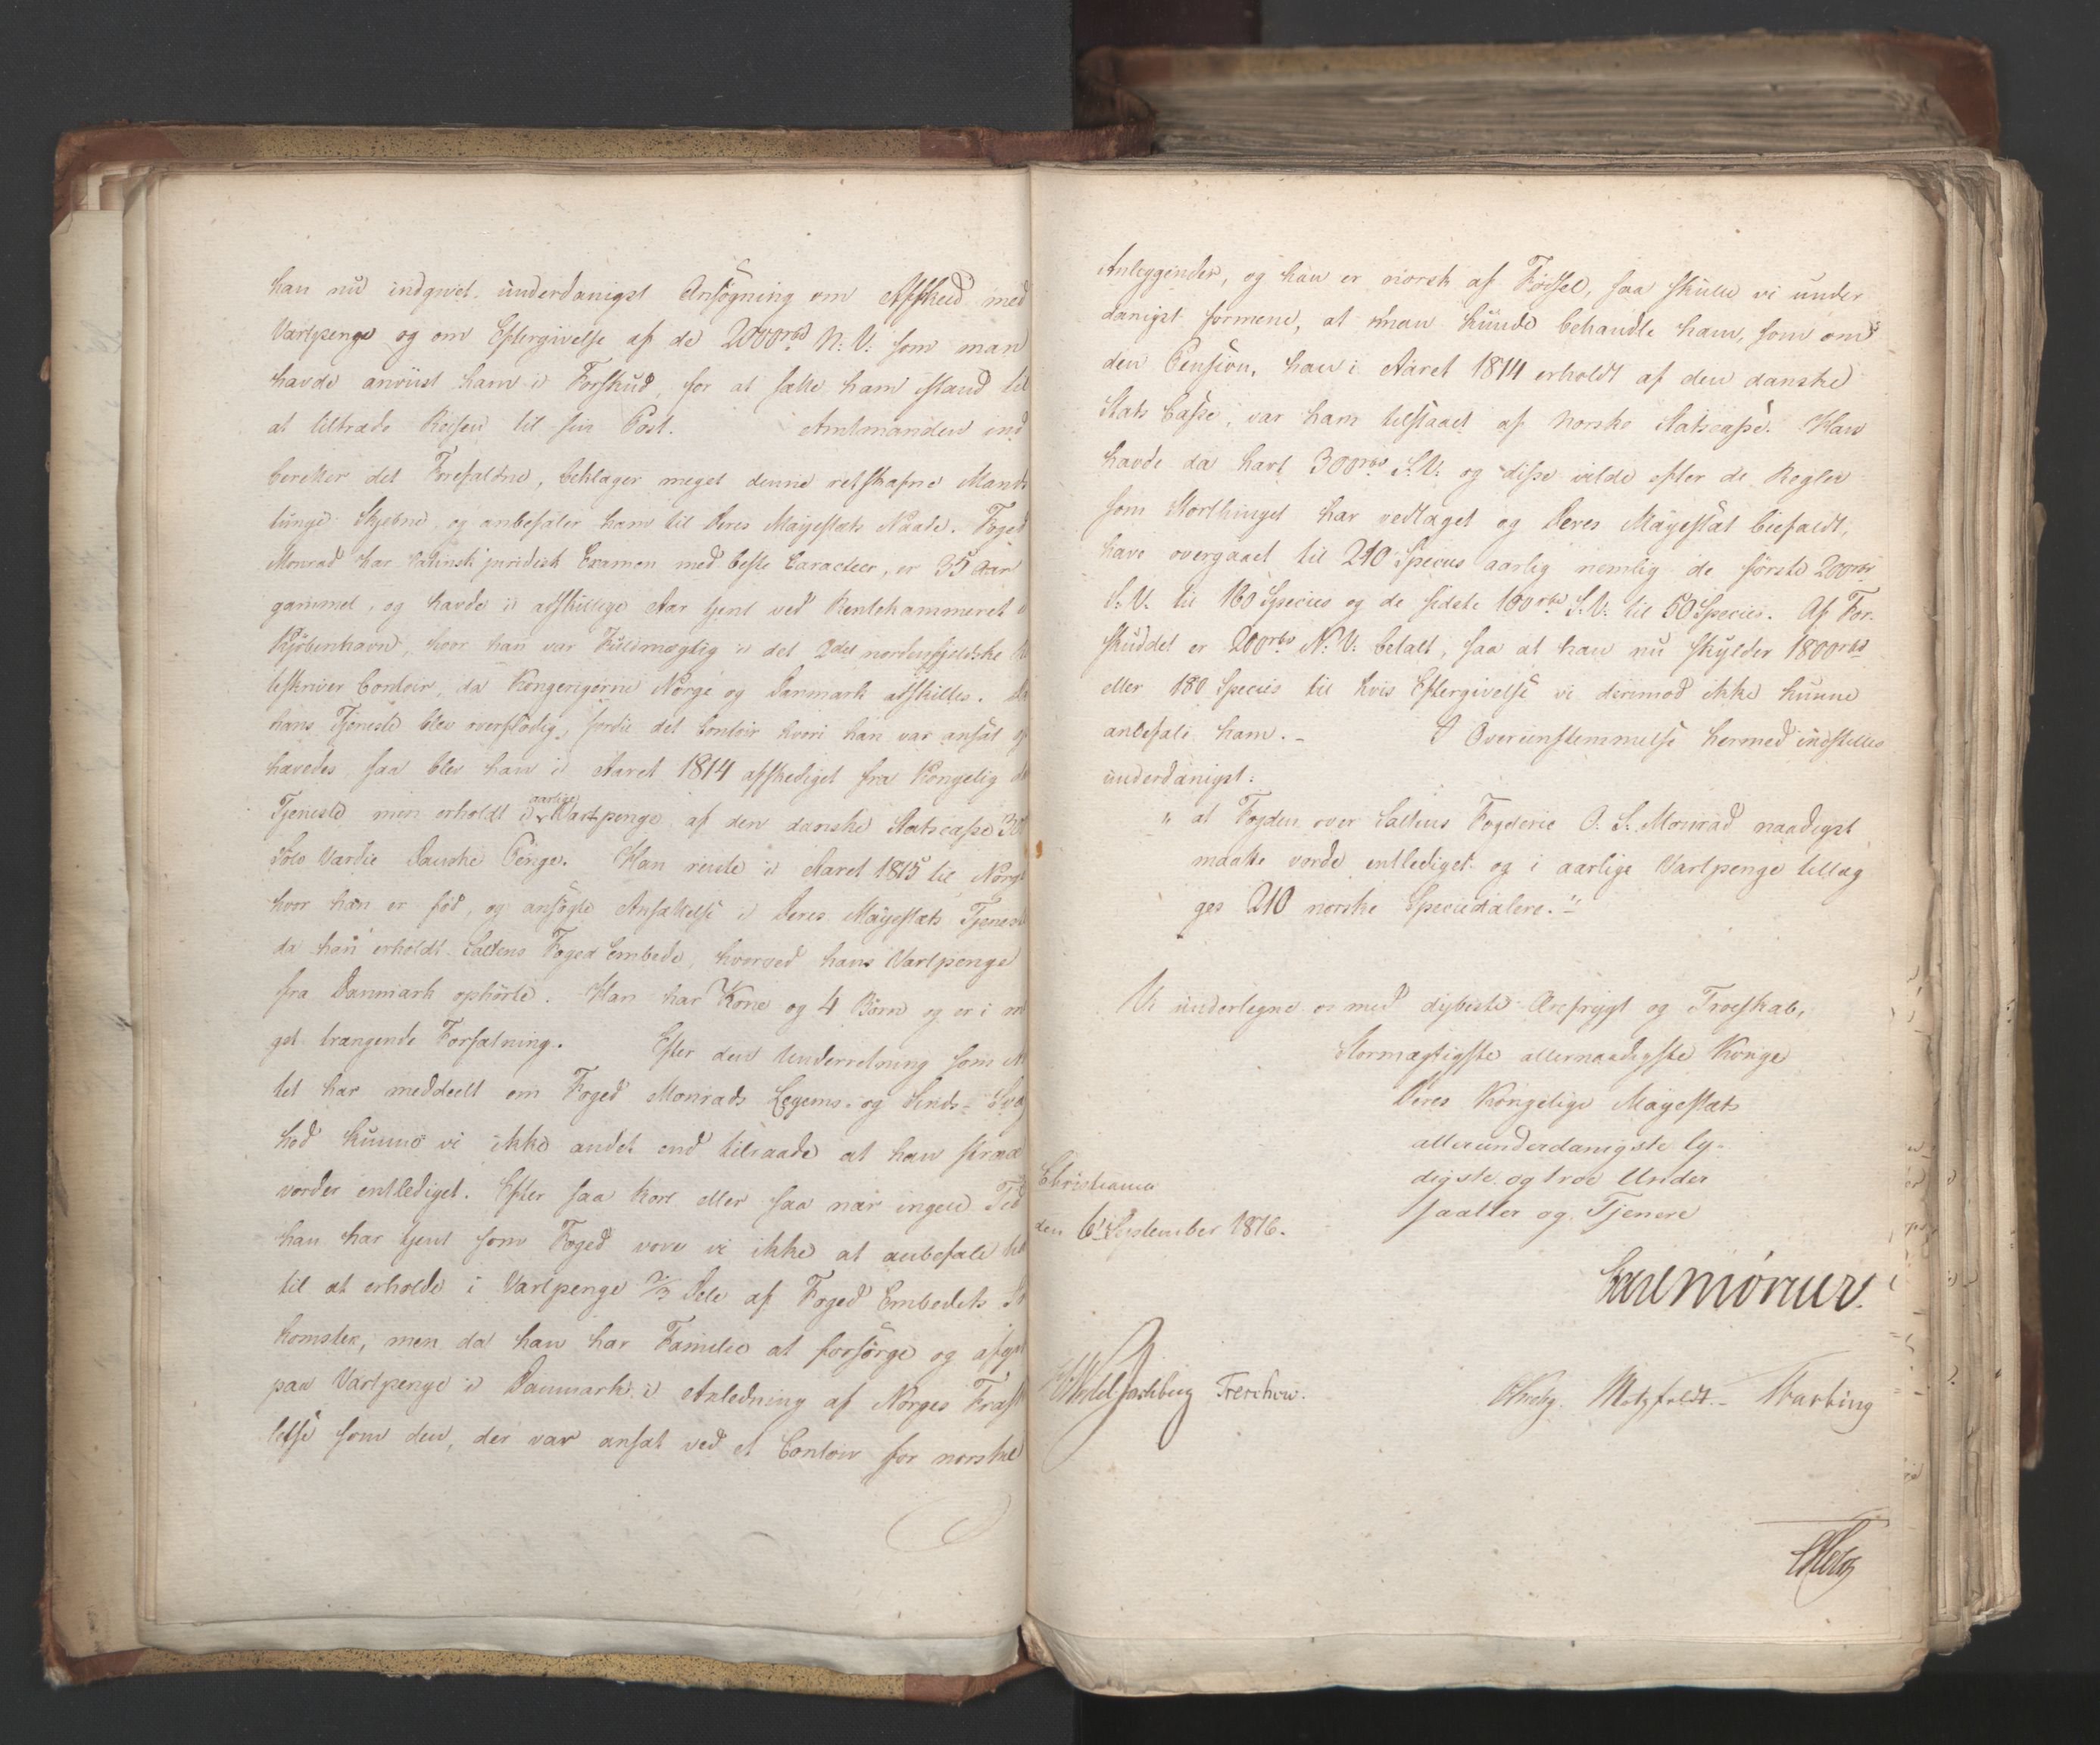 han nu indgivet underdanigst Ansøgning om Afskeed med
Vartpenge og om Eftergivelse af de 2000rbd N: V: som man
havde anviist ham i Forskud, for at sætte ham istand til
at tiltræde Reisen til sin Post. Amtmanden ind
beretter det Forefaldne, beklager meget denne retskafne Mands
tunge Skjebne, og anbefaler ham til Deres Mayestæts Naade. Foged
Monrad har Latinsk juridisk Examen med beste Caracteer, er 35 Aar
gammel, og havde i adskillige Aar tjent ved Rentekammeret i
Kjøbenhavn, hvor han var Fuldmægtig i det 2det nordenfjeldske
teskriver Contoir, da Kongerigerne Norge og Danmark adskilles. Da
hans Tjeneste blev overflødig, fordie det Contoir hvori han var ansat op
hævedes, saa blev han i Aaret 1814 afskediget fra Kongelig
Tjeneste men erholdt i aarlige Vartpenge af den danske Statscasse 300
Sølv Værdie Danske Penge. Han reiste i Aaret 1815 til Norge
hvor han er fød, og ansøgte Ansættelse i Deres Mayestæts Tjeneste
da han erholdt Saltens Foged Embede, hvorved hans Vartpenge
fra Danmark ophørte. Han har Kone og 4 Børn og er i me
get trængende Forfatning. Efter den Underretning som
tet har meddeelt om Foged Monrads Legems- og Sinds- Svag
hed kunne vi ikke andet end tilraade at han strax
vorder entlediget. Efter saa kort eller saa nær ingen Tid
han har tjent som Foged vove vi ikke at anbefale ham
til at erholde i Vartpenge 2/3 Dele af Foged Embedets Ind
komster, men da han har Familie at forsørge og afgik
paa Vartpenge i Danmark i Anledning af Norges Frast
telse som den, der var ansat ved et Contoir for norske
Anleggender, og han er norsk af Fødsel, saa skulle vi under
danigst formene, at man kunde behandle ham, som om
den Pension, han i Aaret 1814 erholdt af den danske
Stats Casse, var ham tilstaaet af Norske Statscasse. Han
havde da havt 300rbd S.V: og disse vilde efter de Regler
som Storthinget har vedtaget og Deres Mayestæt biefaldt,
have overgaaet til 210 Species aarlig nemlig de første 200rbd
S.V. til 160 Species og de sidste 100rbd S.V: til 50 Species. Af For-
skuddet er 200rbd N: V: betalt, saa at han nu skylder 1800rbd
eller 180 Species til hvis Eftergivelse vi derimod ikke kunne
anbefale ham.- I Overeensstemmelse hermed indstilles
underdanigst:
" at Fogden over Saltens Fogderie O. S. Monrad naadigst
maatte vorde entlediget og i aarlige Vartpenge tillæg
ges 210 norske Speciedalere."
Vi undertegne os med dybeste Ærefrygt og Troeskab,
Stormægtigste allernaadigste Konge
Deres Kongelige Mayestæts
allerunderdanigste ly-
digste og troe Under
saatter og Tjenere
Christiania
den 6t September 1816.
Carl Mörner.
HWedel Jarlsberg Treschow. Motzfeldt.-